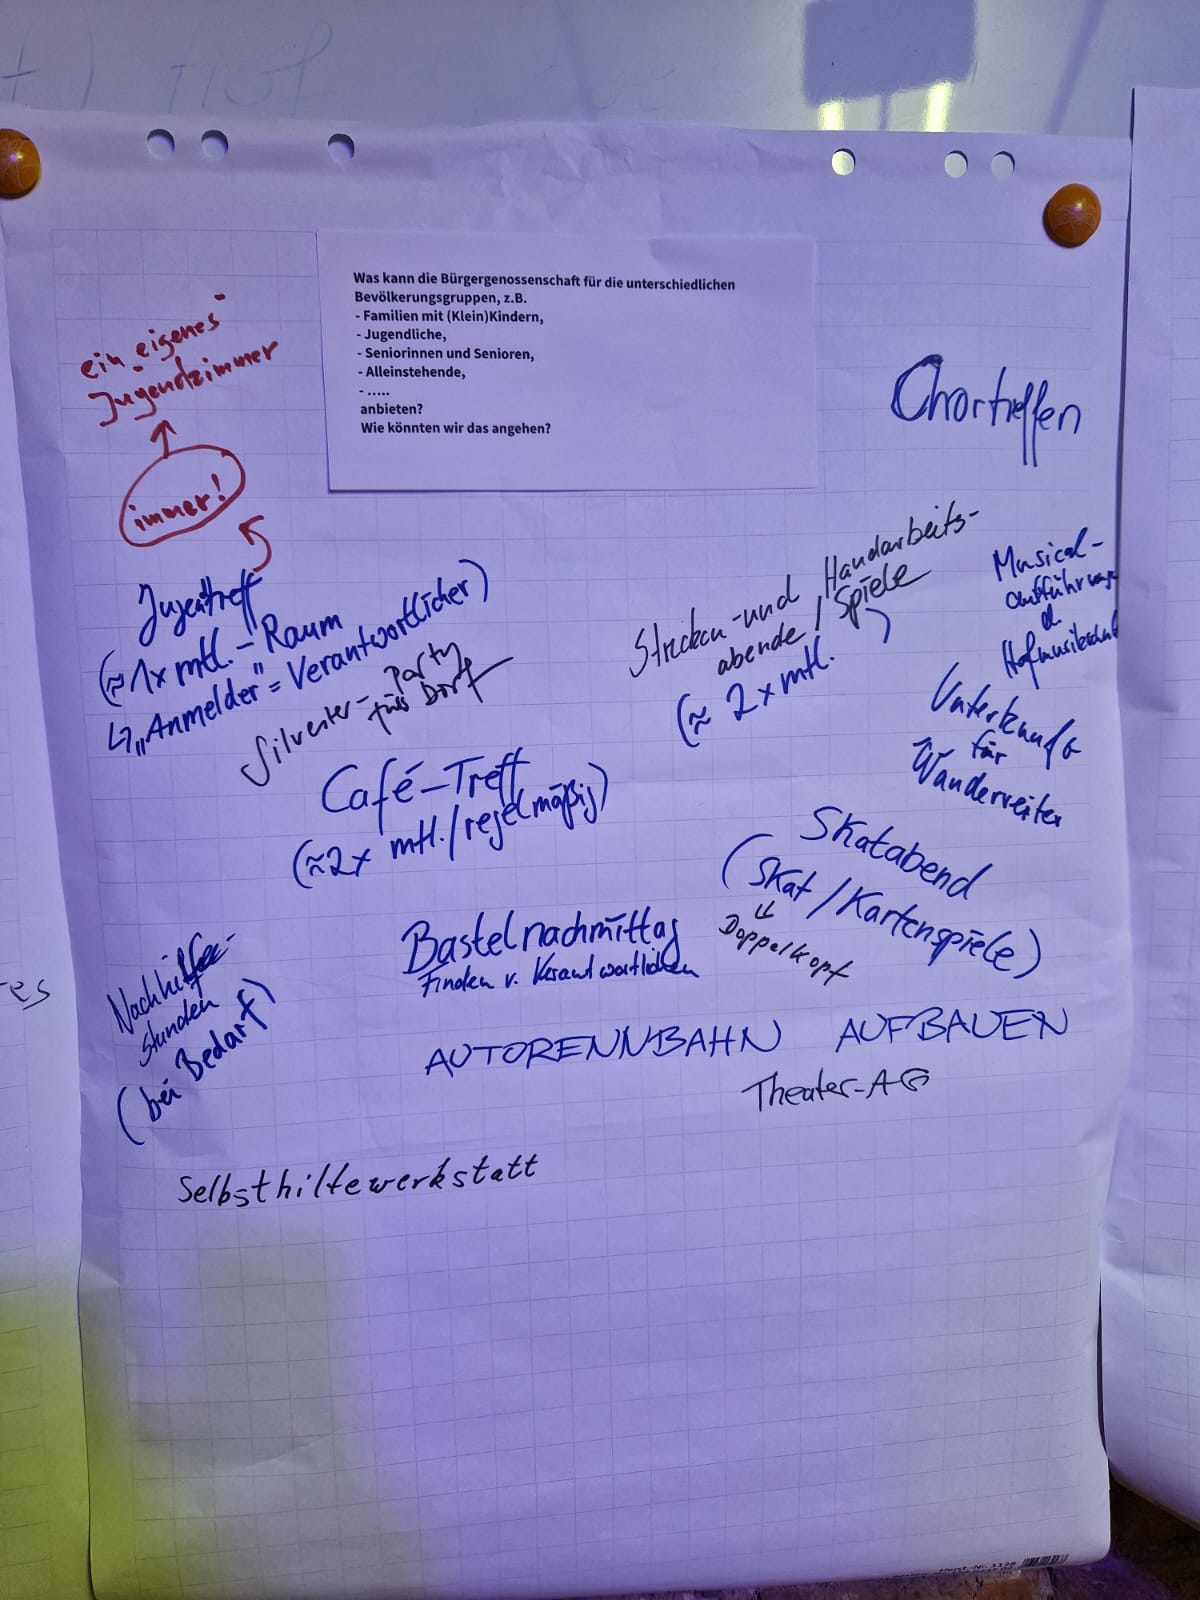 Was kann die Bürgergenossenschaft für die unterschiedlichen
Bevölkerungsgruppen, z.B.
- Familien mit (Klein)Kindern,
- Jugendliche,
- Seniorinnen und Senioren,
- Alleinstehende,
- .....
anbieten?
Wie könnten wir das angehen?
ein eigenes
Jugendzimmer
immer!
Jugendtreff
(≈1x mtl. - Raum
↳ „Anmelder" = Verantwortlicher)
Silvester-Party
fürs Dorf
Chortreffen
Stricken- und Handarbeits-
abende / Spiele
(≈ 2x mtl. )
Musical-
aufführung
d.
Unterkunft
für
Wanderreiter
Café-Treff
(≈2x mtl./regelmäßig)
Skatabend
(Skat / Kartenspiele)
Doppelkopf
Bastelnachmittag
Finden v. Verantwortlichen
Nachhilfe-
stunden
(bei Bedarf)
AUTORENNBAHN AUFBAUEN
Theater-AG
Selbsthilfewerkstatt